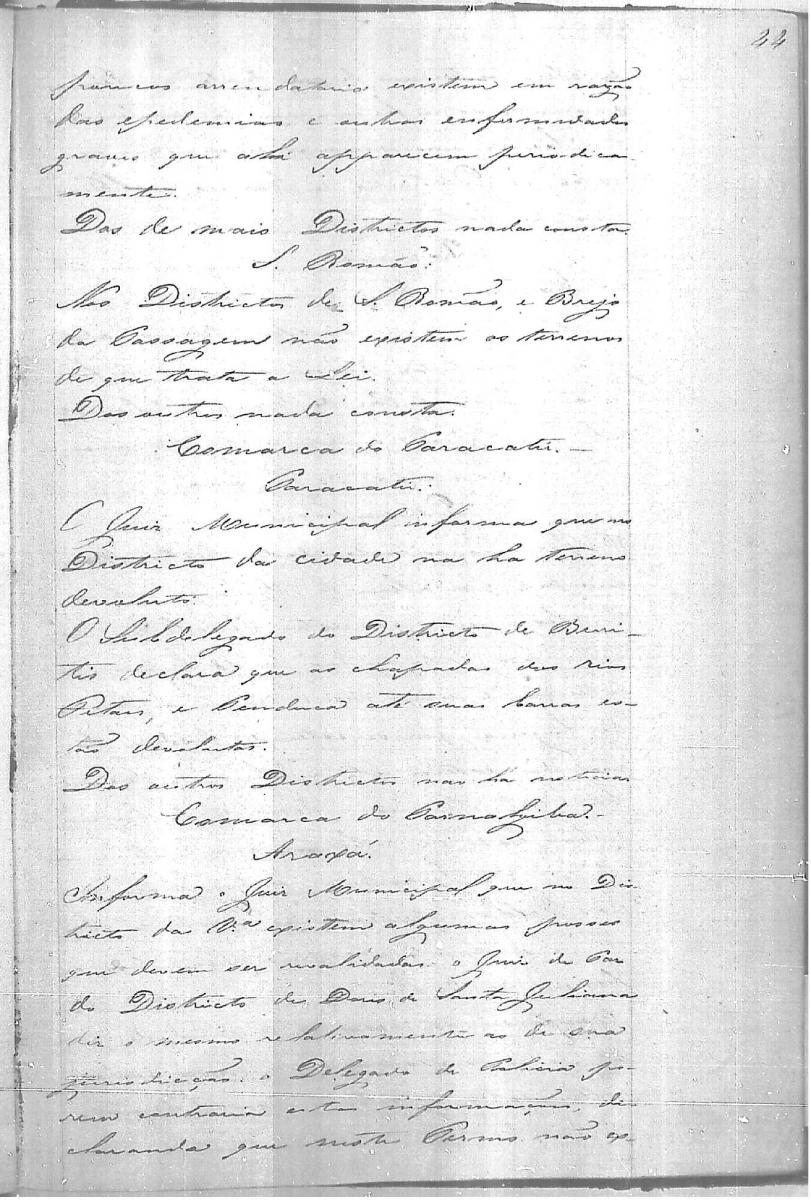 44
poucos arrendatario existem em razão
das epedemias e outras enfermidades
graves que ahi apparecem periodica-
mente.
Dos de mais Districtos nada consta.
S. Romão.
Nos Districtos de S. Romão, e Brejo
da Passagem não existem os terrenos
de que trata a Lei.
Dos outros nada consta.
Comarca do Paracatú.
Paracatú.
O Juiz Municipal informa que no
Districto da cidade na ha terreno
devoluto.
O Subdelegado do Districto de Buri-
tis declara que as chapadas dos rios
e até suas barras es-
tão devolutas.
Dos outros Districtos nao ha noticias
Comarca do Parnahyba.
Araxá.
Informa o Juiz Municipal que no Dis-
tricto da V.ª existem algumas posses
que devem ser revalidadas. o Juiz de Paz
do Districto de Dores de Santa Juliana
diz o mesmo relativamente as de sua
jurisdicção. o Delegado de Policia po-
rem contraria estas informações, de-
clarando que neste Termo não ex-